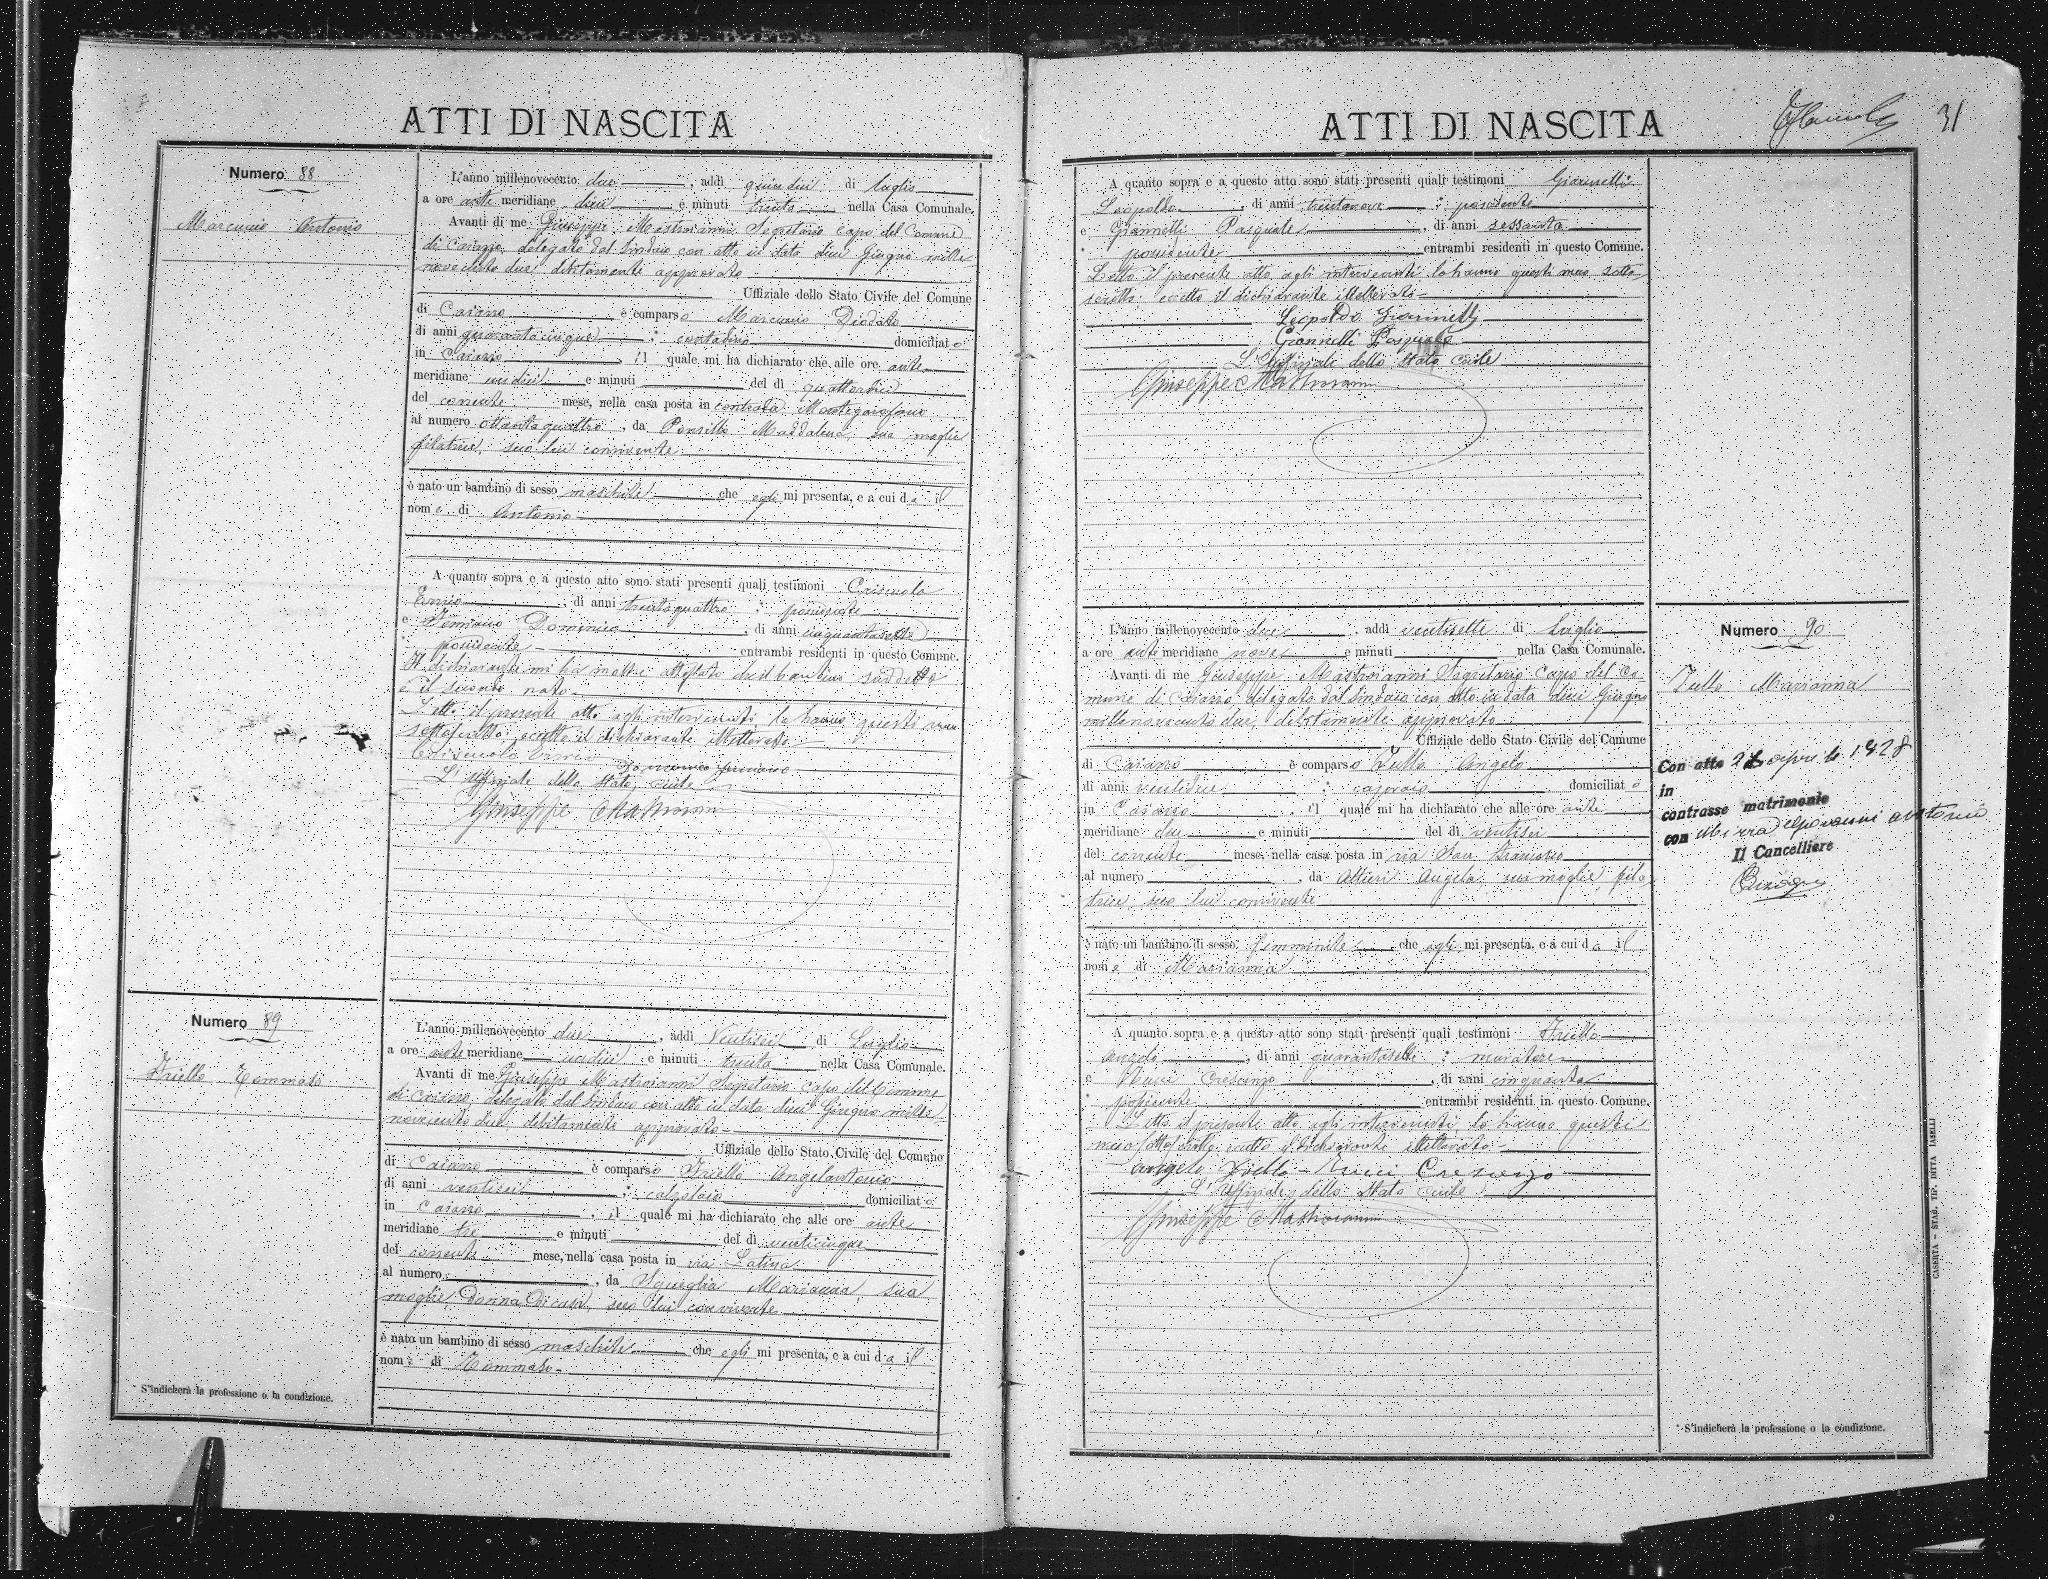 ATTI DI NASCITA
Numero 88
Marcuccio Antonio
L'anno millenovecento due, addì quindici di luglio
a ore ante meridiane dieci e minuti trenta nella Casa Comunale.
Avanti di me Giuseppe Mastroianni Segretario capo del Comune
di Caiazzo, delegato dal Sindaco con atto in data dieci Giugno mille
novecento due, debitamente approvato
Uffiziale dello Stato Civile del Comune
di Caiazzo è comparso Marcuccio Diodato
di anni quarantacinque contadino domiciliato
in Caiazzo, il quale mi ha dichiarato che alle ore ante
meridiane undici e minuti del dì quattordici
del corrente mese, nella casa posta in contrada
al numero ottantaquattro, da Maddalena, sua moglie
filatrice, seco lui convivente
è nato un bambino di sesso maschile che egli mi presenta, e a cui da il
nome di Antonio
A quanto sopra e a questo atto sono stati presenti quali testimoni Crisciuolo
Enrico, di anni trentaquattro possidente
e Domenico, di anni
possidente entrambi residenti in questo Comune.
Il dichiarante mi ha inoltre attestato che il bambino suddetto
è il secondo nato
Letto il presente atto agli intervenuti, lo hanno questi meco
sottoscritto, eccetto il dichiarante illetterato
Crisciuolo Enrico
L'Uffiziale dello Stato Civile
Giuseppe Mastroianni
Numero 89
Friello Tommaso
L'anno millenovecento due, addì Ventisei di Luglio
a ore ante meridiane undici e minuti trenta nella Casa Comunale.
Avanti di me Giuseppe Mastroianni Segretario capo del Comune
di Caiazzo, delegato dal Sindaco con atto in data dieci Giugno mille
novecento due, debitamente approvato
Uffiziale dello Stato Civile del Comune
di Caiazzo è comparso Friello Angelantonio
di anni ventisei calzolaio domiciliato
in Caiazzo, il quale mi ha dichiarato che alle ore ante
meridiane tre e minuti del dì venticinque
del corrente mese, nella casa posta in via Latina
al numero, da Squeglia Marianna, sua
moglie, Donna di casa, seco lui convivente
è nato un bambino di sesso maschile che egli mi presenta, e a cui da il
nome di Tommaso
S'indicherà la professione o la condizione.
ATTI DI NASCITA
31
A quanto sopra e a questo atto sono stati presenti quali testimoni Giannelli
Leopoldo, di anni trentanove possidente
e Giannelli Pasquale, di anni sessanta
possidente entrambi residenti in questo Comune.
Letto il presente atto agli intervenuti lo hanno questi meco sotto
scritto eccetto il dichiarante illetterato
Leopoldo Giannelli
Giannelli Pasquale
L'Uffiziale dello Stato Civile
Giuseppe Mastroianni
Numero 90
Zullo Marianna
L'anno millenovecento due, addì ventisette di Luglio
a ore ante meridiane nove e minuti nella Casa Comunale.
Avanti di me Giuseppe Mastroianni Segretario Capo del Co
mune di Caiazzo, delegato dal Sindaco con atto in data dieci Giugno
millenovecento due, debitamente approvato
Uffiziale dello Stato Civile del Comune
di Caiazzo è comparso Zullo Angelo
di anni ventidue domiciliato
in Caiazzo, il quale mi ha dichiarato che alle ore ante
meridiane due e minuti del dì ventisei
del corrente mese, nella casa posta in via San Francesco
al numero, da Altieri Angela, sua moglie fila
trice, seco lui convivente
è nato un bambino di sesso femminile che egli mi presenta, e a cui da il
nome di Marianna
A quanto sopra e a questo atto sono stati presenti quali testimoni Friello
Angelo, di anni quarantasette muratore
e Nucci Crescenzo, di anni cinquanta
possidente entrambi residenti in questo Comune.
Letto il presente atto agli intervenuti lo hanno questi
meco sottoscritto, eccetto il dichiarante illetterato
Angelo Friello Nucci Crescenzo
L'Uffiziale dello Stato Civile
Giuseppe Mastroianni
Con atto aprile 1928
in
contrasse matrimonio
con Giovanni Antonio
Il Cancelliere
* S'indicherà la professione o la condizione.
CASERTA – STAB. TIP. DITTA IASELLI